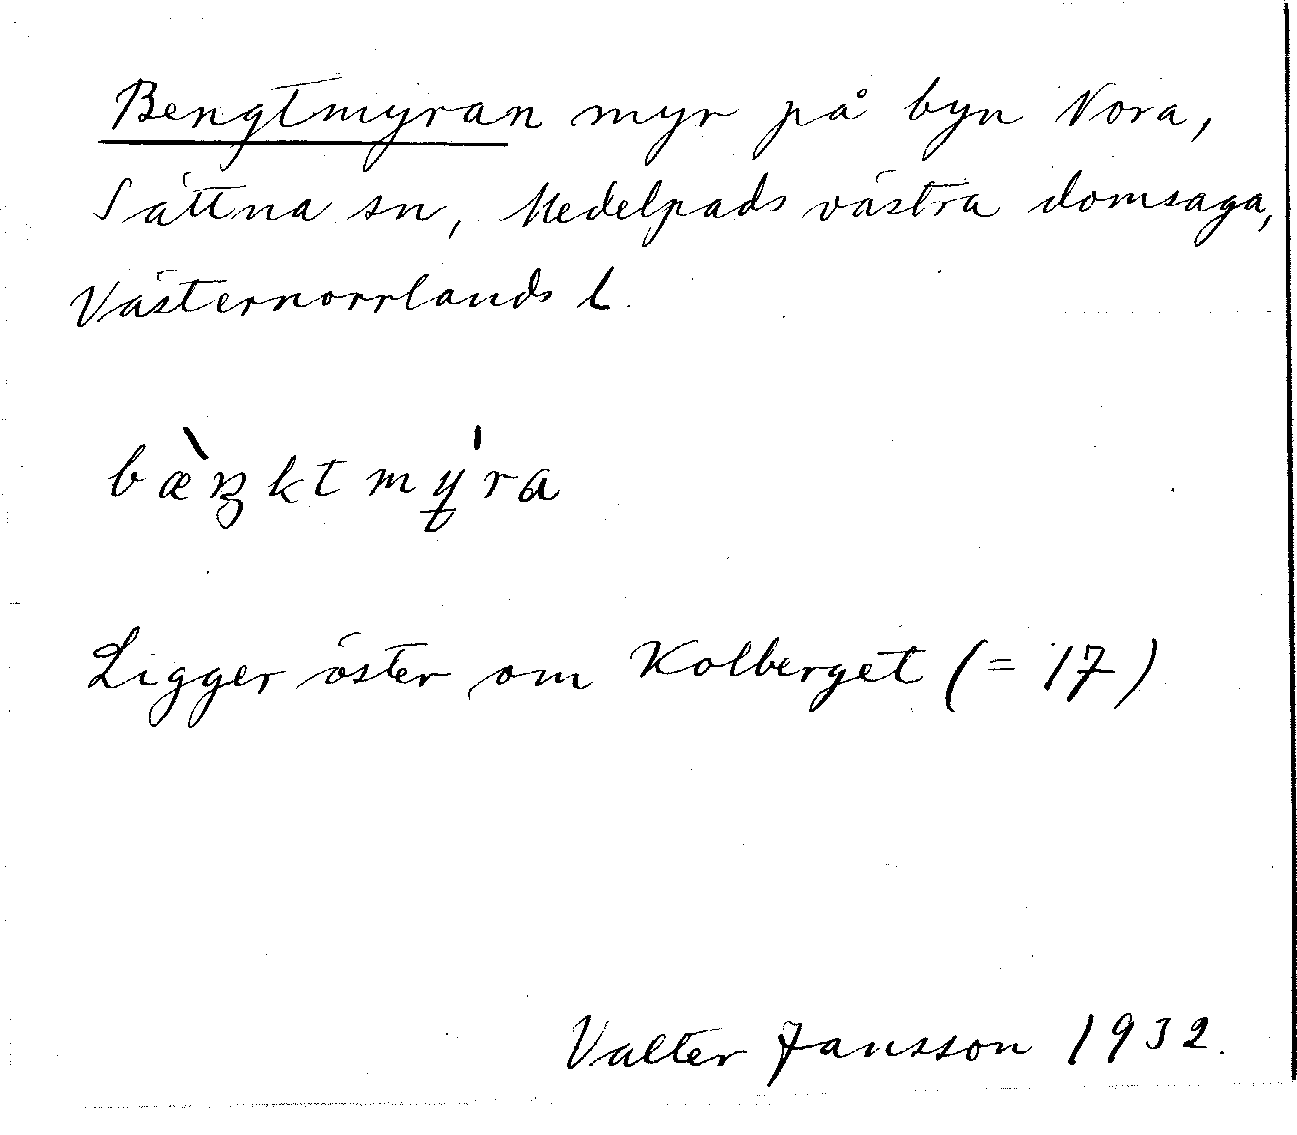 Bengtmyran myr på byn Nora,
Sättna sn, Medelpads västra domsaga,
Västernorrlands l.
bæ̀ŋktmý̵ra
Ligger öster om Kolberget (= 17)
Valter Jansson 1932.